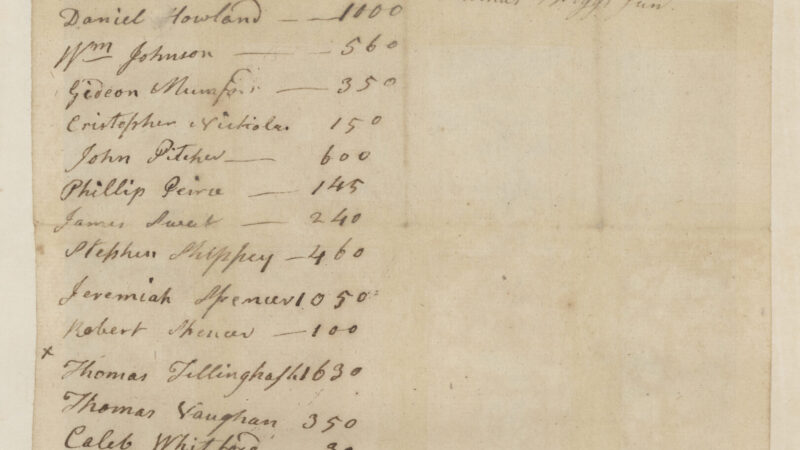 Daniel Howland — 1000
Wm Johnson — 560
Gideon Mumford — 350
Cristopher Nickolas 150
John Pitcher — 600
Phillip Peirce — 145
James Sweet — 240
Stephen Shippey — 460
Jeremiah Spencer 1050
Robert Spencer — 100
x
Thomas Tillinghast 1630
Thomas Vaughan 350
Caleb Whitford